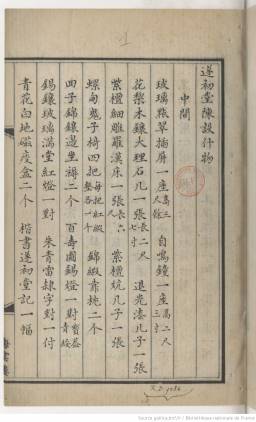 遂初堂陳設什物
中間
玻璃點翠插屏一座高三尺餘 自鳴鐘一座高二尺三寸
花棃木鑲大理石几一張長二尺七寸 退光漆几子一張
紫檀細雕羅漢床一張長六尺 紫檀炕几子一張
螺甸鬼子椅四把每把紅緞墊各一个 錦緞靠枕二个
四子錦鑲邊坐褥二个 百壽圖錫燈一對寶蓋青綬
錫鑲玻璃滿堂紅燈一對 朱青雷隸字對一付
青花白地磁痰盒二个 楷書遂初堂記一幅
Source gallica.bnf.fr / Bibliothèque nationale de France